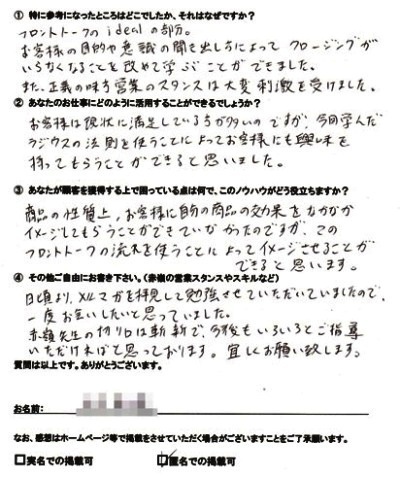 ① 特に参考になったところはどこでしたか、それはなぜですか？
フロントトークのidealの部分。
お客様の目的や意識の聞き出し方によってクロージングが
いらなくなることを改めて学ぶことができました。
また、正義の味方営業のスタンスは大変刺激を受けました。
② あなたのお仕事にどのように活用することができるでしょうか？
お客様は現状に満足している方が多いのですが、今回学んだ
ラジウスの法則を使うことによってお客様にも興味を
持ってもらうことができると思いました。
③ あなたが顧客を獲得する上で困っている点は何で、このノウハウがどう役立ちますか？
商品の性質上、お客様に目的の商品の効果をなかなか
イメージしてもらうことができていなかったのですが、この
フロントトークの流れを使うことによってイメージさせることが
できると思います。
④ その他ご自由にお書き下さい。（赤嶺の営業スタンスやスキルなど）
日頃より、メルマガを拝見して勉強させていただいていましたので、
一度お会いしたいと思っていました。
赤嶺先生の切り口は斬新で、今後もいろいろとご指導
いただければと思っております。宜しくお願い致します。
質問は以上です。ありがとうございます。
お名前：
なお、感想はホームページ等で掲載をさせていただく場合がございますことをご了承願います。
□実名での掲載可 ☑匿名での掲載可